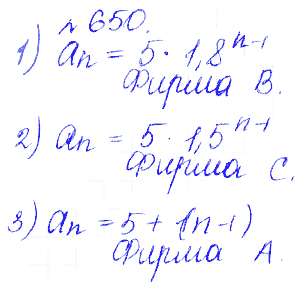 № 650.
1) an = 5 · 1,8^n-1
Фирма B.
2) an = 5 · 1,5^n-1
Фирма C.
3) an = 5 + (n-1)
Фирма A.